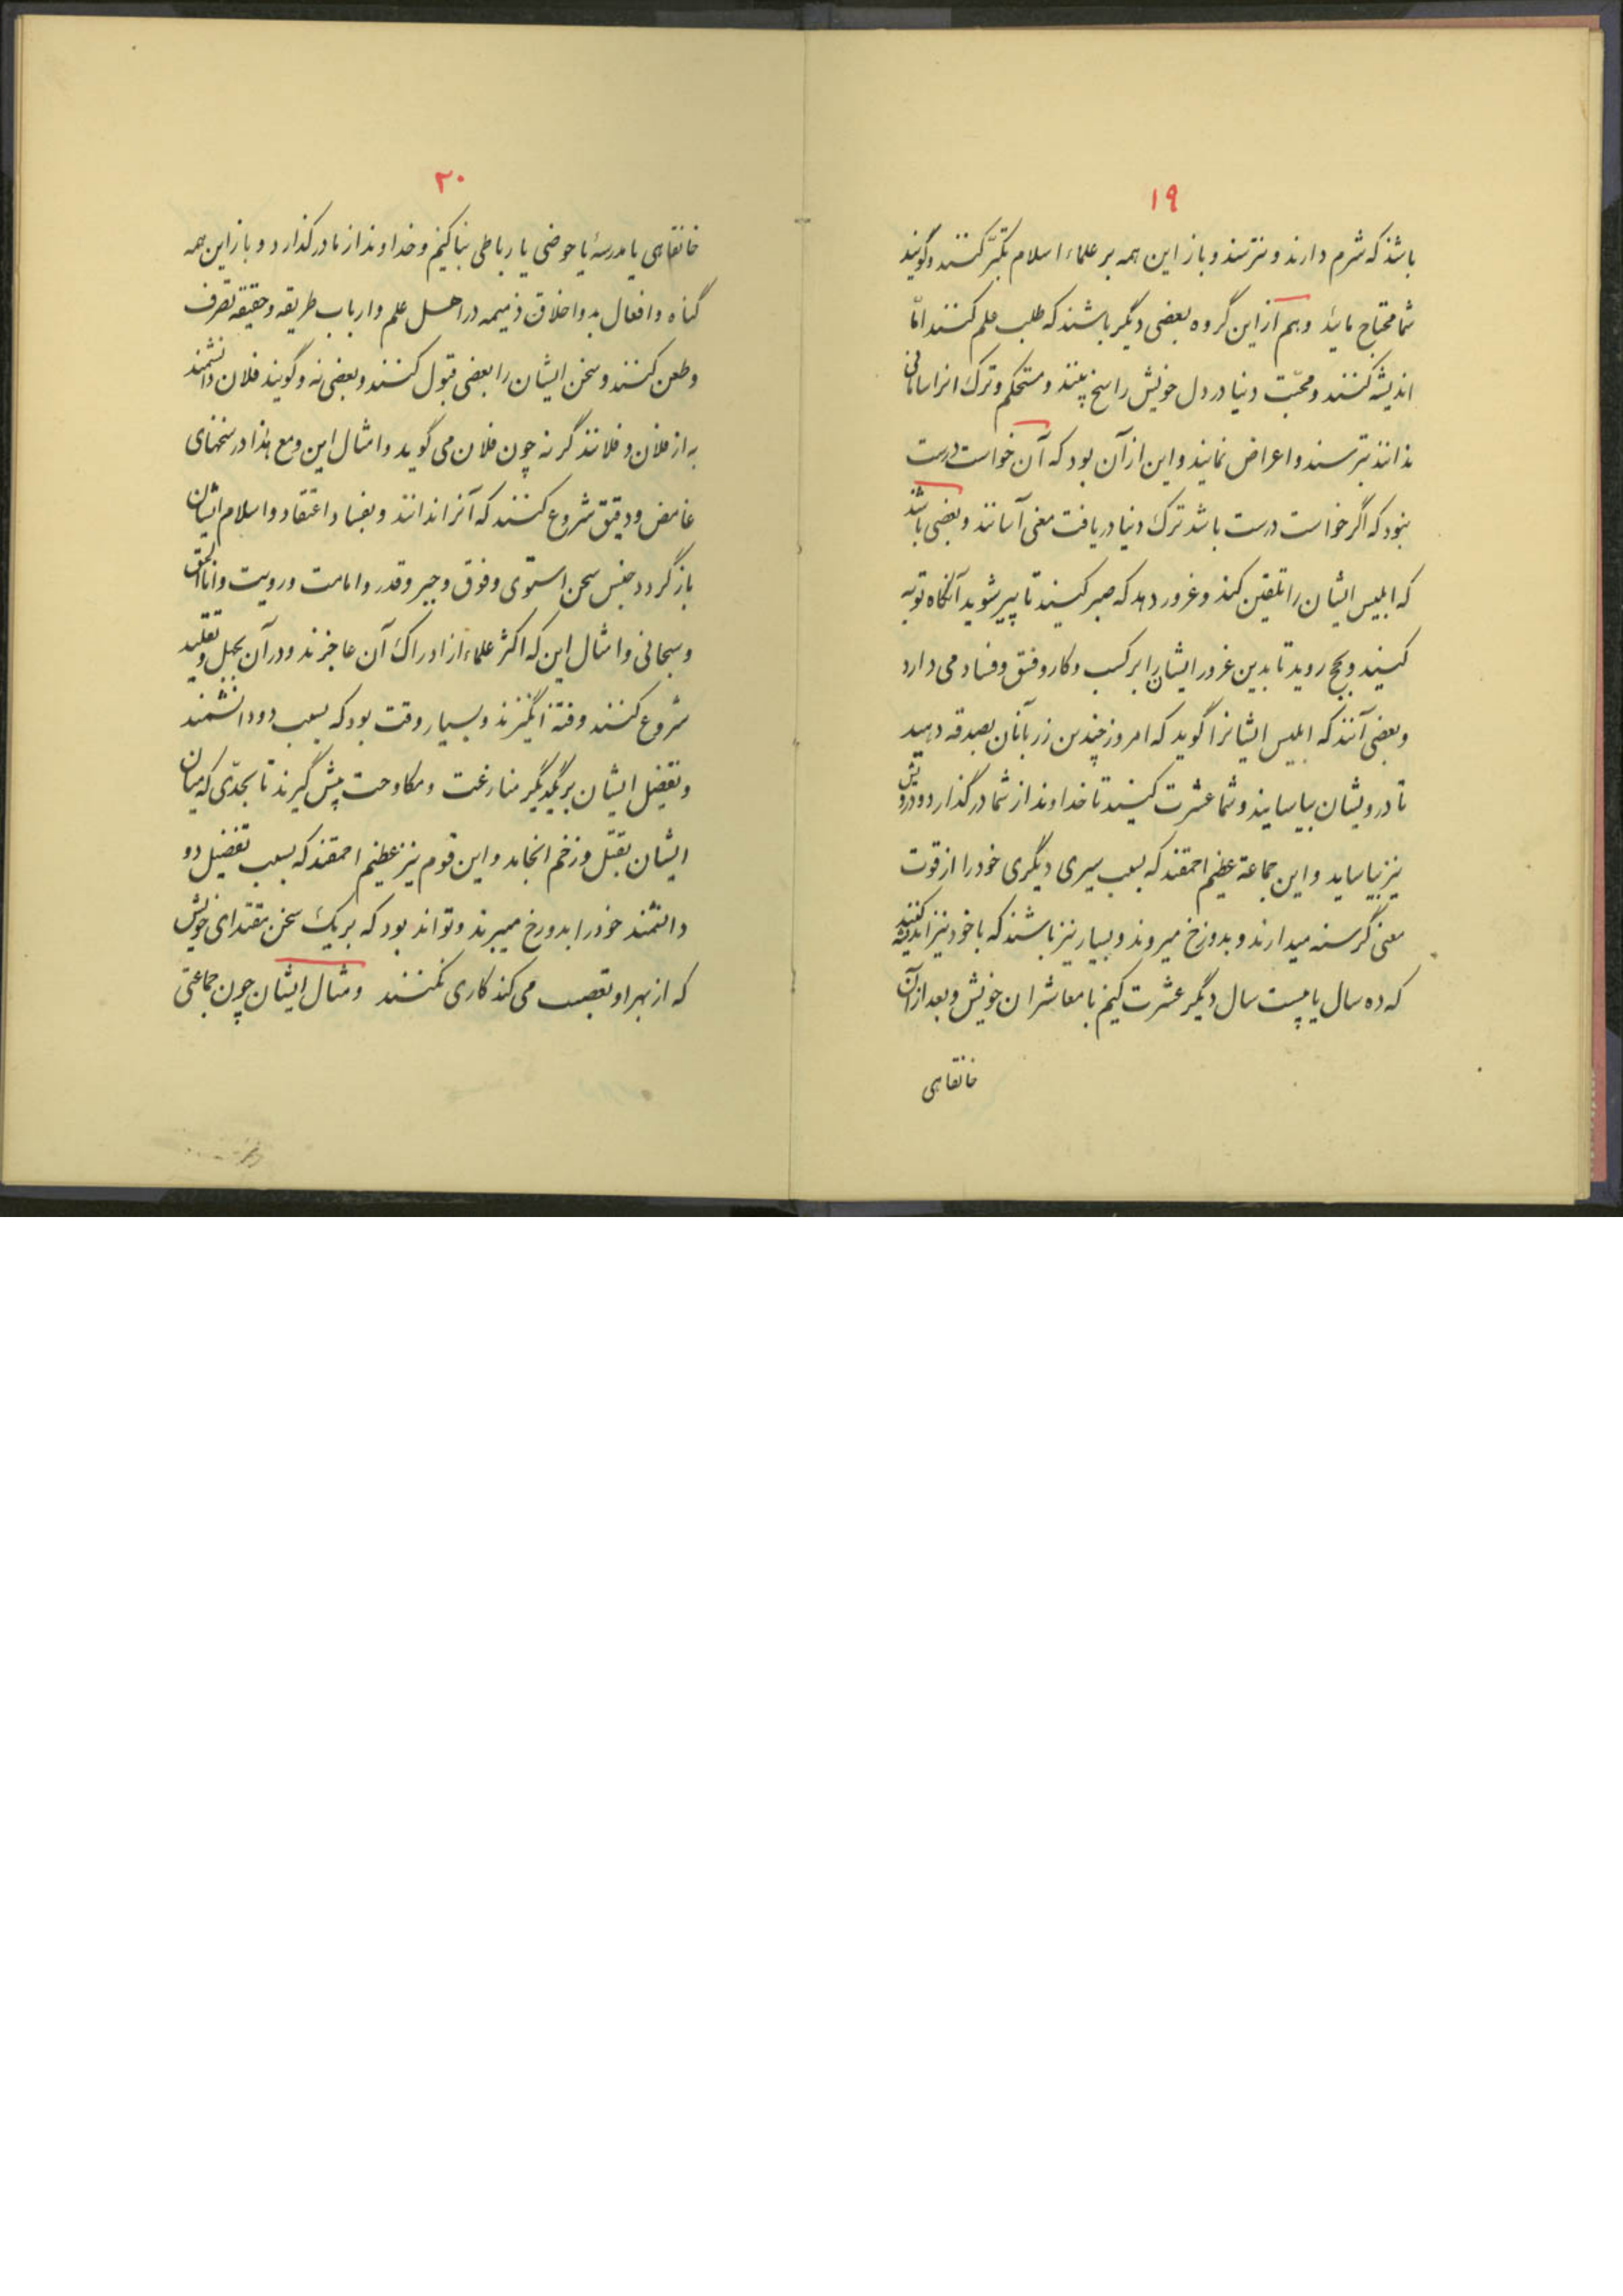 ۱۹
باشد که شرم دارند و نترسند و باز این همه بر علماء اسلام تکبّر کنند و گویند
شما محتاج مائید و هم از این گروه بعضی دیگر باشند که طلب علم کنند امّا
اندیشه کنند و محبّت دنیا در دل خویش راسخ بینند و مستحکم و ترک انرا سامانی
ندانند بترسند و اعراض نمایند و این از آن بود که آن خواست درست
نبود که اگر خواست درست باشد ترک دنیا در یافت معنی آسانند و بعضی باشد
که ابلیس ایشان را تلقین کند و غرور دهد که صبر کنید تا پیر شوید آنگاه توبه
کنید و بحج روید تا بدین غرور ایشان را بر کسب و کار و فسق و فساد می دارد
و بعضی آنند که ابلیس ایشانرا گوید که امروز چندین زر بانان بصدقه دهید
تا درویشان بیاسایند و شما عشرت کنید تا خداوند از شما در گذارد و درویش
نیز بیاساید و این جماعة عظیم احمقند که بسبب سیری دیگری خود را از قوت
معنی گرسنه میدارند و بدوزخ میروند و بسیار نیز باشند که با خود نیز اندیشه کنند
که ده سال یا بیست سال دیگر عشرت کنیم با معاشران خویش و بعد از آن
خانقاهی
۲۰
خانقاهی یا مدرسهٔ یا حوضی یا رباطی بنا کنیم و خداوند از ما در گذارد و باز این همه
گناه و افعال بد و اخلاق ذمیمه در اهل علم و ارباب طریقه و حقیقه تصرف
و طعن کنند و سخن ایشان را بعضی قبول کنند و بعضی نه و گویند فلان دانشمند
به از فلان و فلانند گر نه چون فلان می گوید و امثال این و مع هذا در سخنهای
غامض و دقیق شروع کنند که آنرا ندانند و بفساد اعتقاد و اسلام ایشان
باز گردد جنس سخن استوی و فوق و جبر و قدر و امامت و رویت و انا الحق
و سبحانی و امثال این که اکثر علماء از ادراک آن عاجزند و در آن بجهل و تقلید
شروع کنند و فتنه انگیزند و بسیار وقت بود که بسبب دو دانشمند
و تفضیل ایشان بر یکدیگر منازعت و مکاوحت پیش گیرند تا بحدّی که میان
ایشان بقتل و زخم انجامد و این قوم نیز عظیم احمقند که بسبب تفضیل دو
دانشمند خود را بدوزخ میبرند و تواند بود که بر یک سخن مقتدای خویش
که از بهر او تعصب می کند کاری نکنند و مثال ایشان چون جماعتی